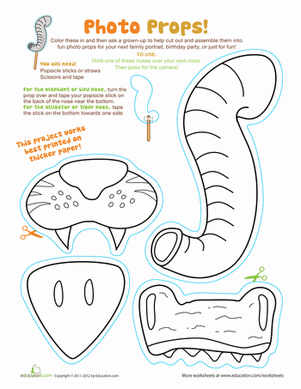 Photo Props!
Color these in and then ask a grown-up to help cut out and assemble them into
fun photo props for your next family portrait, birthday party, or just for fun!
TO USE:
Hold one of these noses over your own nose.
Then pose for the camera!
You will need:
Popsicle sticks or straws
Scissors and tape
For the elephant or bird nose, turn the
prop over and tape your popsicle stick on
the back of the nose near the bottom.
For the alligator or tiger nose, tape
the stick on the bottom towards one side.
This project works
best printed on
thicker paper!
education.com
Copyright © 2011-2012 by Education.com
More worksheets at www.education.com/worksheets